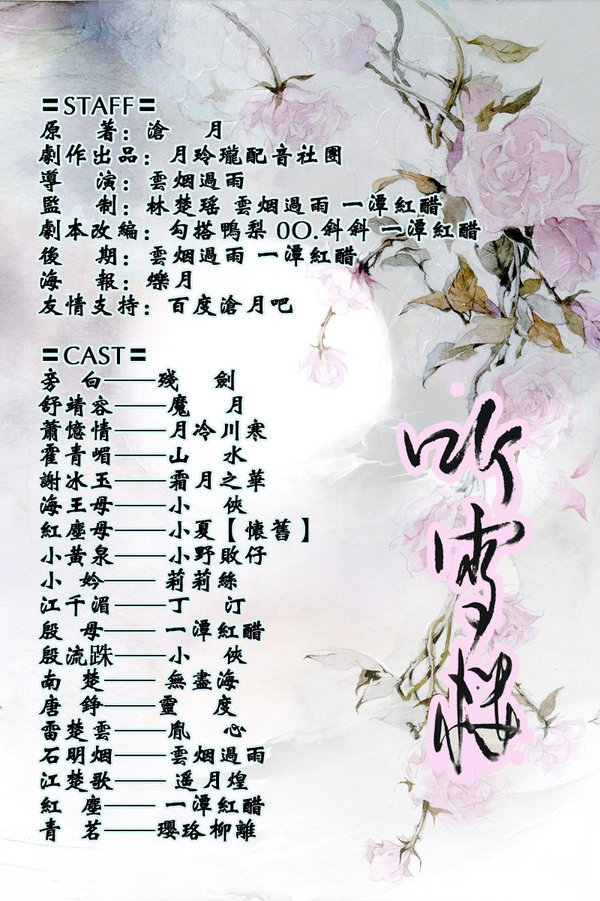 〓STAFF〓
原 著：滄 月
劇作出品：月玲瓏配音社團
導 演：雲烟過雨
監 制：林楚瑶 雲烟過雨 一潭紅醋
劇本改編：勾搭鴨梨 0O.斜斜 一潭紅醋
後 期：雲烟過雨 一潭紅醋
海 報：爍月
友情支持：百度滄月吧
〓CAST〓
旁 白——殘 劍
舒靖容——魔 月
蕭憶情——月冷川寒
霍青嵋——山 水
謝冰玉——霜月之華
海王母——小 俠
紅塵母——小夏【懷舊】
小黃泉——小野敗仔
小 妗——莉莉絲
江千湄——丁 汀
殷 母——一潭紅醋
殷流跦——小 俠
南 楚——無盡海
唐 錚——靈 度
雷楚雲——胤 心
石明烟——雲烟過雨
江楚歌——遥月煌
紅 塵——一潭紅醋
青 茗——瓔珞柳離
听雪楼